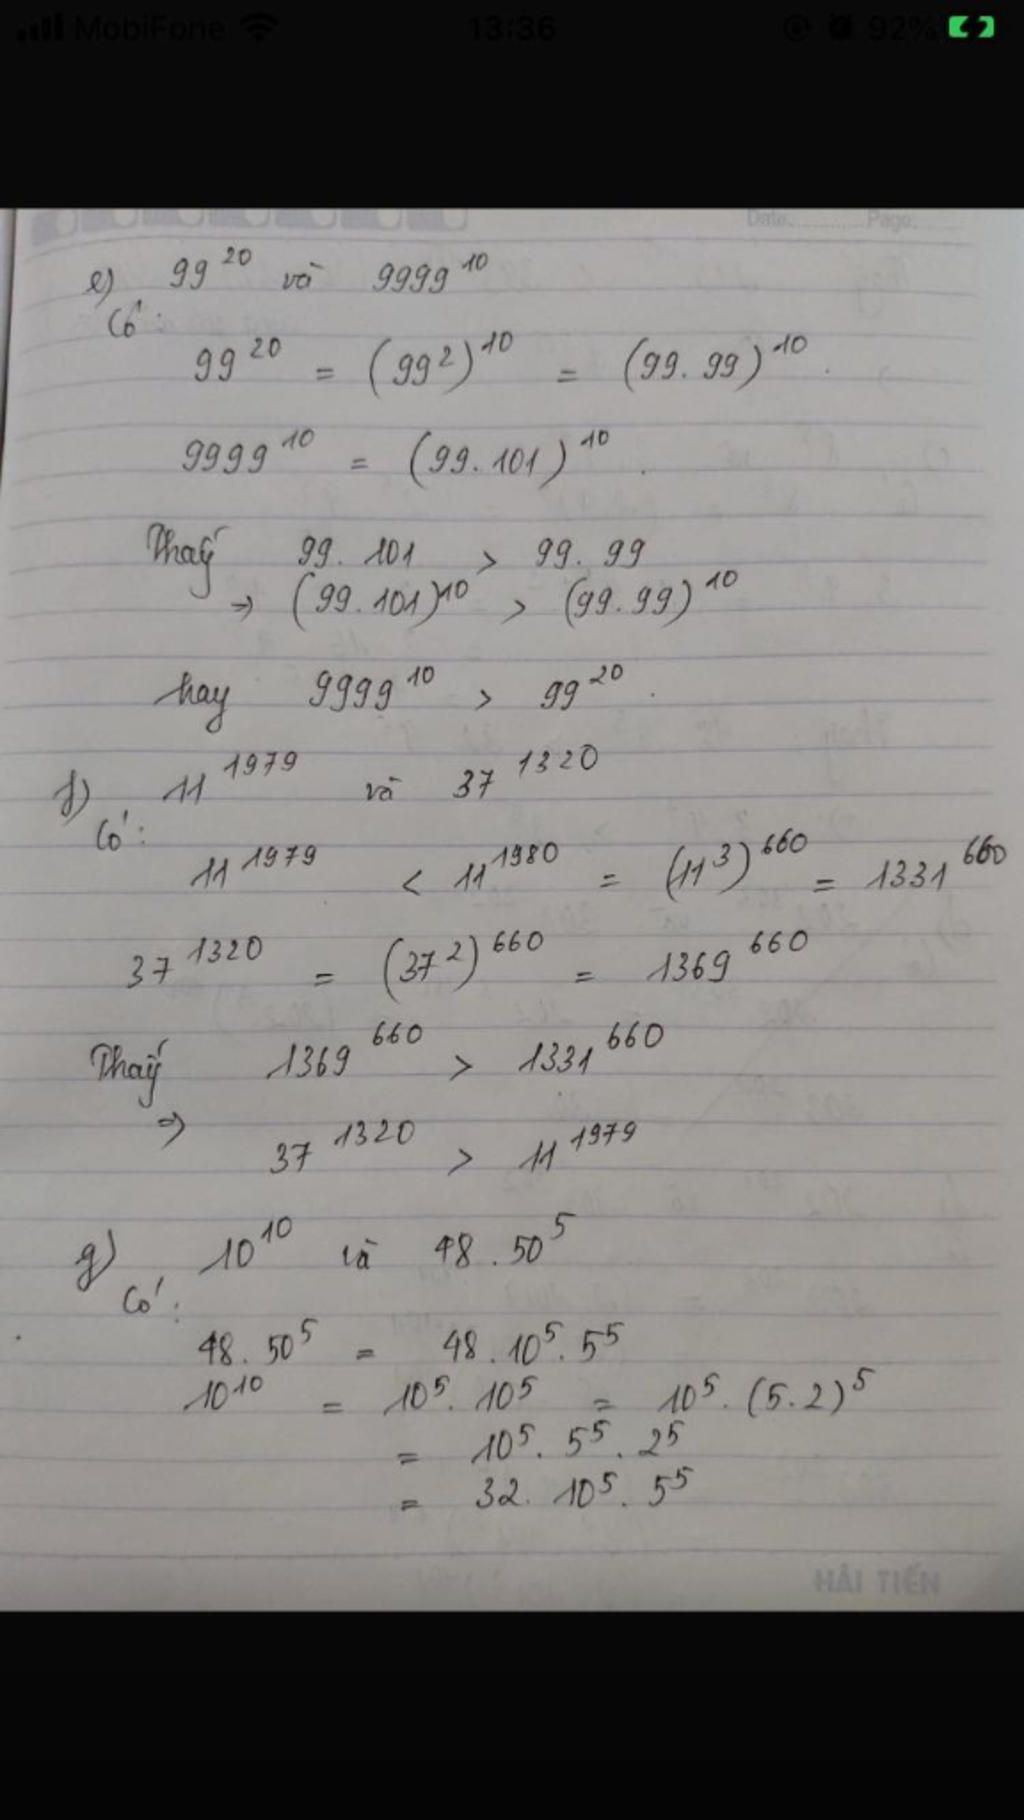 MobiFone 13:36 92%
Date............Page.
e) 99^20 và 9999^10
Có:
99^20 = (99^2)^10 = (99.99)^10.
9999^10 = (99.101)^10.
Thấy 99.101 > 99.99
⇒ (99.101)^10 > (99.99)^10
hay 9999^10 > 99^20.
f) 11^1979 và 37^1320
Có:
11^1979 < 11^1980 = (11^3)^660 = 1331^660
37^1320 = (37^2)^660 = 1369^660
Thấy 1369^660 > 1331^660
⇒ 37^1320 > 11^1979
g) 10^10 và 48.50^5
Có:
48.50^5 = 48.10^5.5^5
10^10 = 10^5.10^5 = 10^5.(5.2)^5
= 10^5.5^5.2^5
= 32.10^5.5^5
HẢI TIẾN